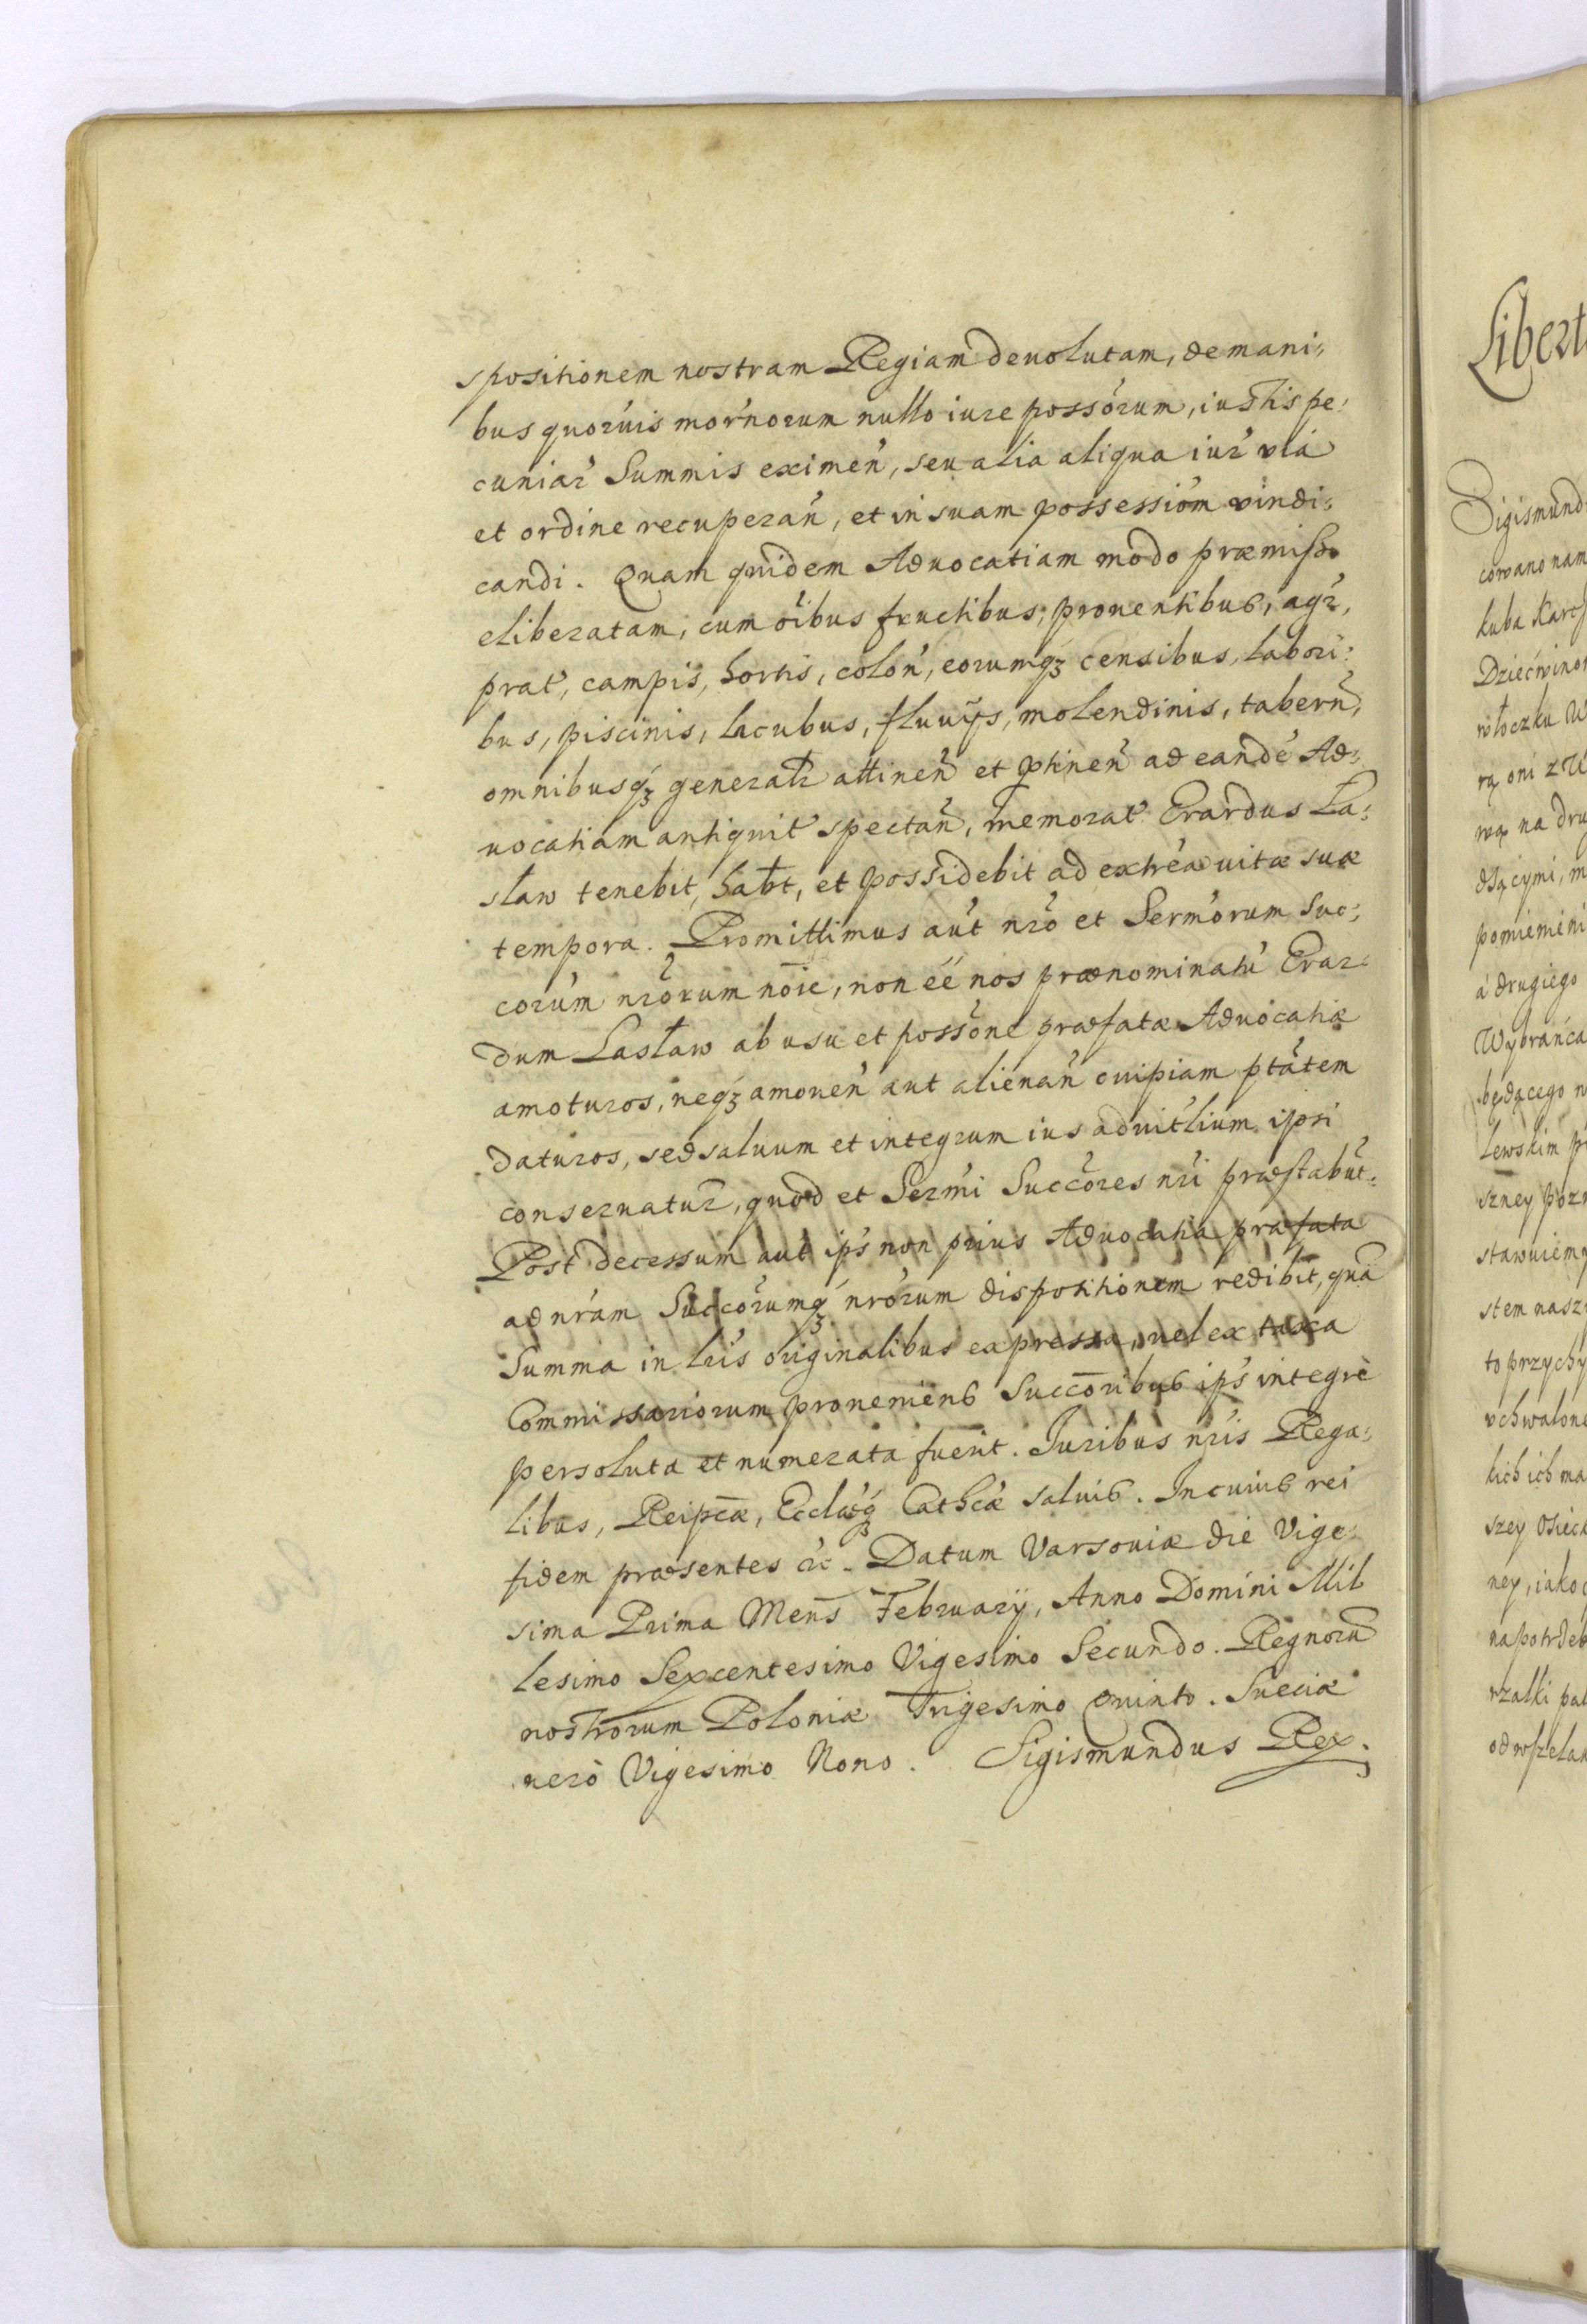 spositionem nostram Regiam deuolutam, de mani:
bus quoruis mor'norum nullo iure possorum, iustis pe:
cuniar' Summis eximen', seu alia aliqua iur' via
et ordine recuperan', et in suam possessiom vindi:
candi. Quam quidem Aduocatiam modo præmisso
eliberatam, cum oibus fructibus, prouentibus, agr',
prat', campis, hortis, colon', eorumqz censibus, labori:
bus, piscinis, lacubus, fluuijs, molendinis, tabern',
omnibusqz generalr attinen' et ptinen' ad eande' Ad:
uocatiam antiquit' spectan', memorat' Erardus La:
sław tenebit, habt, et possidebit ad extrea vitæ suæ
tempora. Promittimus aut' nro et Sermorum Suc:
corum nrorum noie, non ee nos prænominatu' Erar:
dum Lasław ab usu et possone præfatæ Aduocatiæ
amoturos, neqz amouen' aut alienan' cuipiam ptatem
daturos, sed saluum et integrum ius aduit'lium ipsi
conseruatur', quod et Sermi Succores nri præstabut.
Post decessum aut' ips' non prius Aduocatia præfata
ad nram Succorumqz nrorum dispositionem redibit, qua'
Summa in lris originalibus expressa, uel ex taxa
Commissariorum proueniens Succoribus ips' integrè
persoluta et numerata fuerit. Iuribus nris Rega:
libus, Reipcæ, Ecclæqz Cathcæ saluis. In cuius rei
fidem præsentes &c. Datum Varsouiæ die Vige:
sima Prima Mens Februarij, Anno Domini Mil
lesimo Sexcentesimo Vigesimo Secundo. Regnoru'
nostrorum Poloniæ Trigesimo Quinto. Sueciæ
uerò Vigesimo Nono. Sigismundus Rex.
Libert
Sigismund
cowano nam
kuba Karc
Dziećwino
włoczku W
rą oni z W
wą na dru
dsącymi, m
pomieni
à drugiego
Wybrańca
będącego n
lewskim p
szney poz
stawuiemy
stem nasz
to przychy
vchwalone
kich ich ma
szey Osieck
ney, iako
na potrdeb
rzałki pal
od wszelak